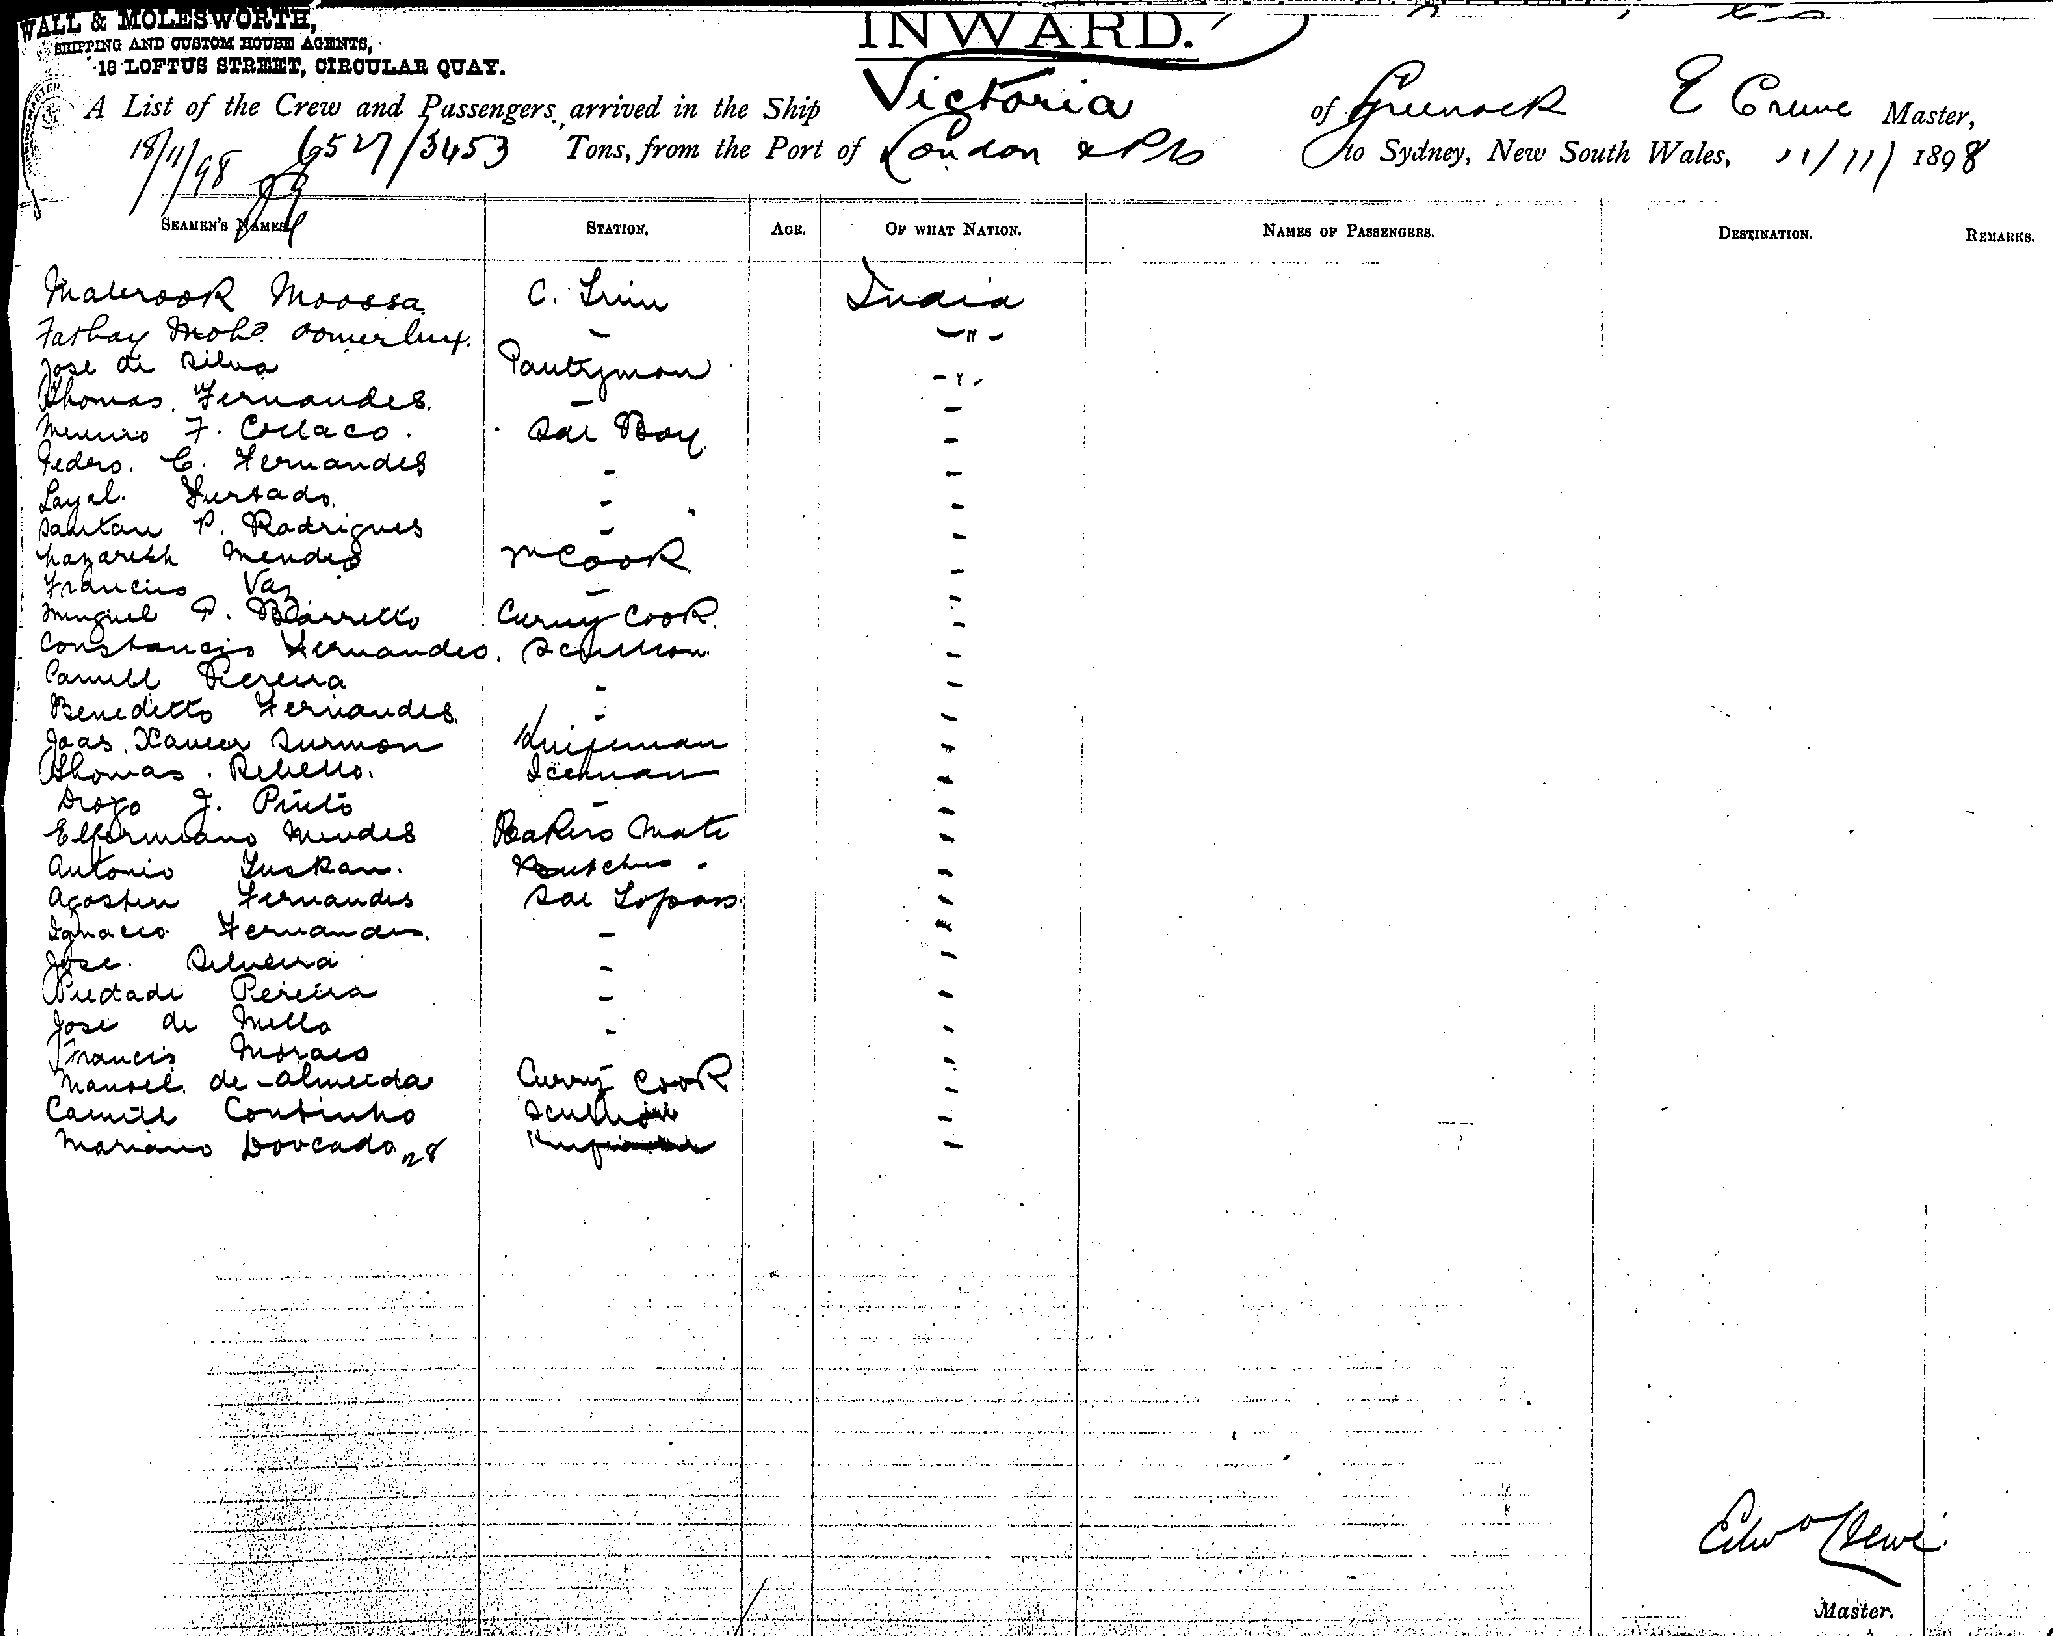 WALL & MOLESWORTH,
SHIPPING AND CUSTOM HOUSE AGENTS,
18 LOFTUS STREET, CIRCULAR QUAY.
INWARD.
A List of the Crew and Passengers, arrived in the Ship Victoria of Greenock E Crewe Master,
18/11/98 6527/3453 Tons, from the Port of London & Pts to Sydney, New South Wales, 11/11/1898
SEAMEN'S NAMES. STATION. AGE. OF WHAT NATION. NAMES OF PASSENGERS. DESTINATION. REMARKS.
Mabrook Moossa C. Trim India
Fatbay Mohd. - - " -
Jose de Silva Pantryman - " -
Thomas Fernandes. - -
F. Collaco. Sal Boy -
Pedro. C. Fernandes - -
Furtado. - -
Santan P. Rodrigues - -
Nazareth Mendes M Cook -
Francisco Vaz - -
Minguel P. Barretto Curry Cook. -
Constancio Fernandes. Scullion -
Camill Pereira - -
Benedicto Fernandes. - -
Joas. Xavier Surmon Knifeman -
Thomas. Rebello. Iceman -
Diogo J. Pinto - -
Mendes Bakers Mate -
Antonio Luskan. Butcher. -
Agostin Fernandes Sal Topass -
Ignacio Fernandes. - -
Jose. Silveira - -
Piedade Pereira - -
Jose de Mello - -
Francis Moraes - -
Manoel de-Almeida Curry Cook -
Camill Continho Scullion -
Mariano Dovcado 28 -
Edwd Crewe
Master.